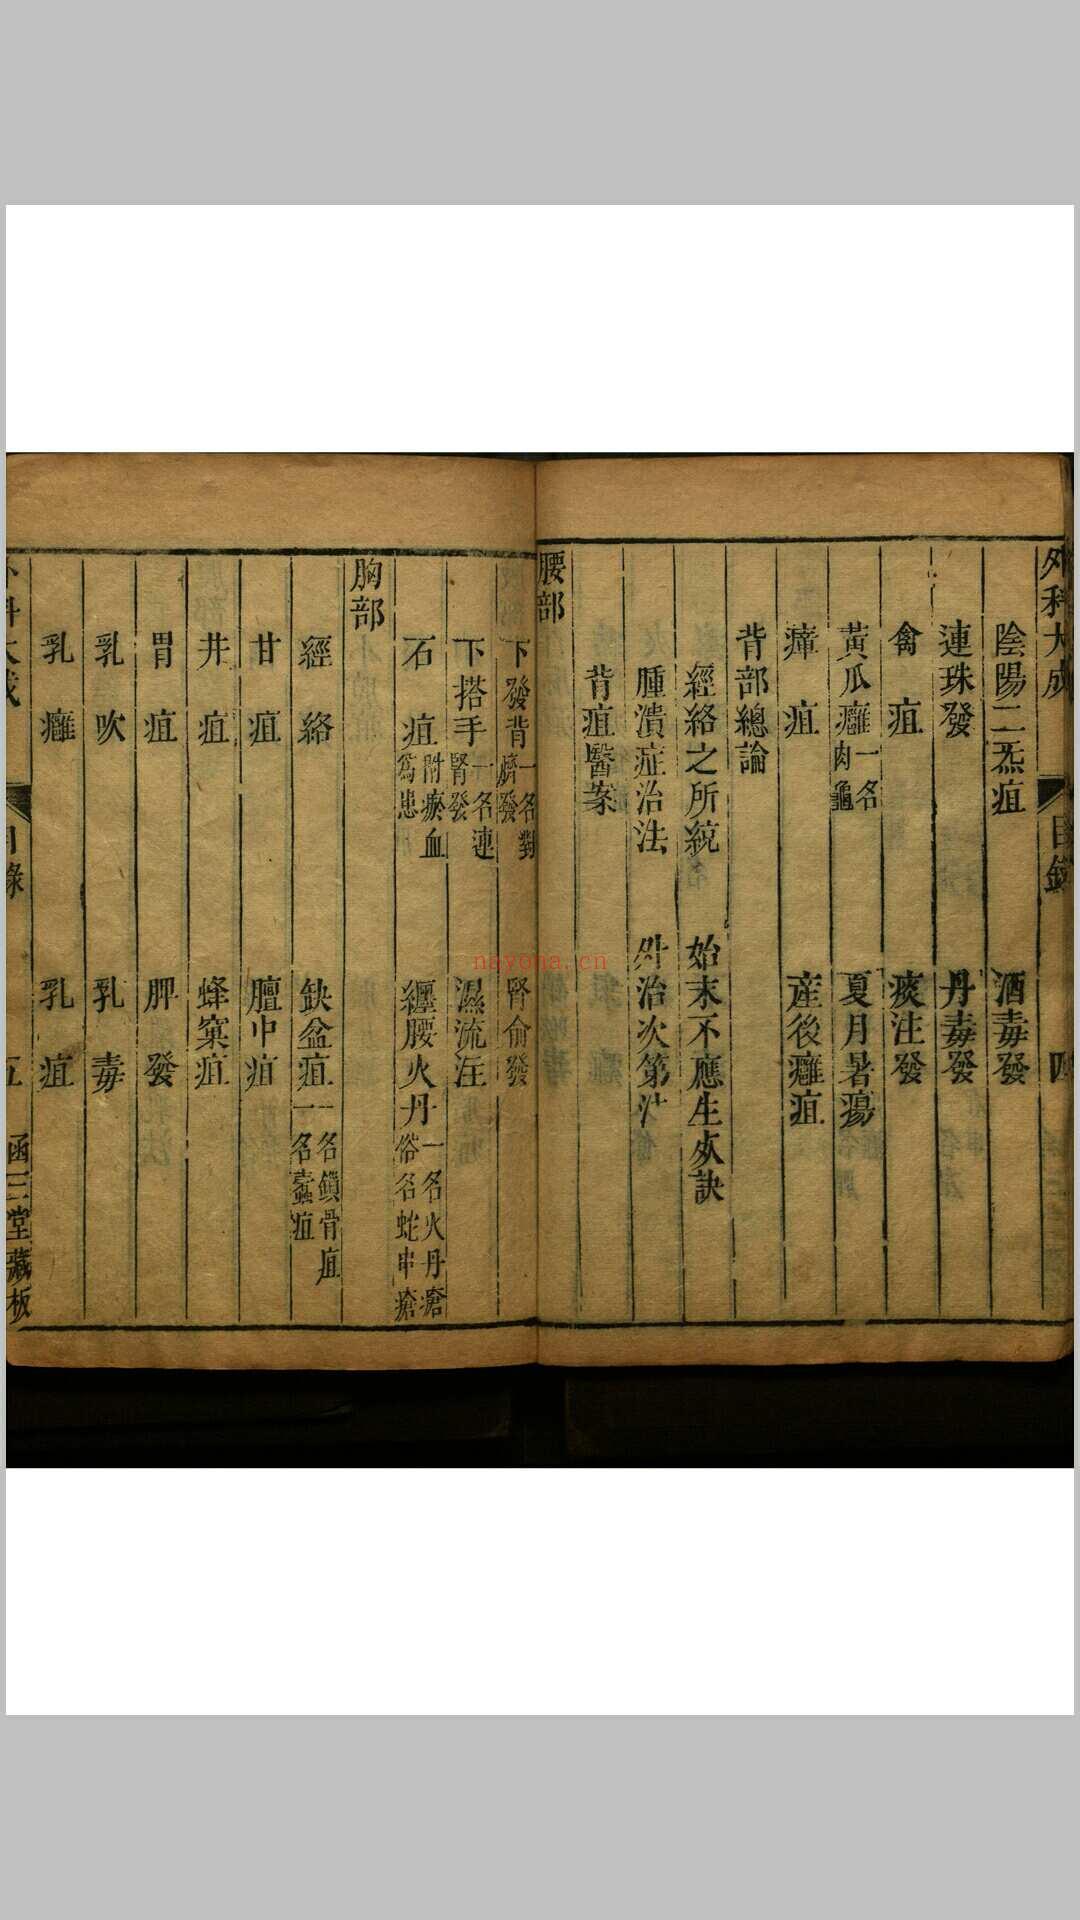 外科大成 目錄 四
陰陽二炁疽 酒毒發
連珠發 丹毒發
禽疽 痰注發
黃瓜癰一名肉龜 夏月暑瘍
瘴疽 産後癰疽
背部總論
經絡之所統 始末不應生灸訣
腫潰症治法 外治次第法
背疽醫案
腰部
下發背一名對臍發 腎俞發
下搭手一名連腎發 濕流注
石疽附瘀血爲患 纏腰火丹一名火丹瘡俗名蛇串瘡
胸部
經絡 缺盆疽一名鎖骨疽一名蠹疽
甘疽 膻中疽
井疽 蜂窠疽
胃疽 脾發
乳吹 乳毒
乳癰 乳疽
科大成 目錄 五 函三堂藏板
nayona.cn